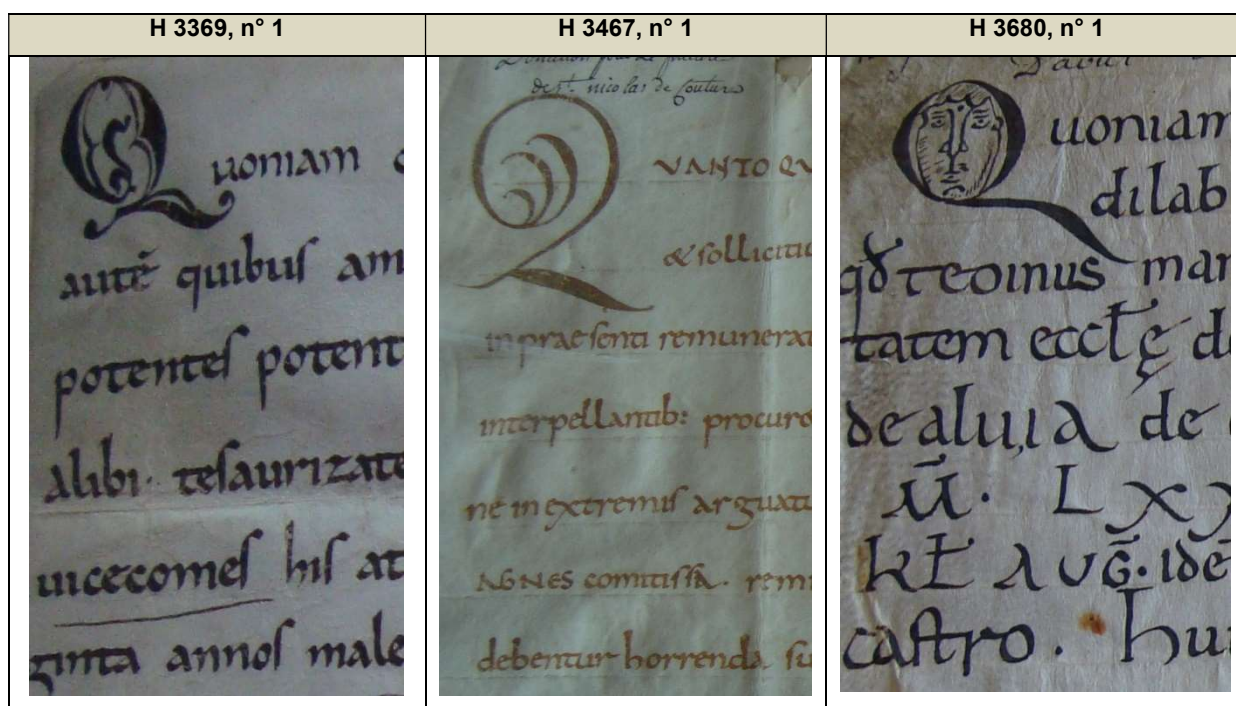 H 3369, n° 1
Quoniam
autē quibus am
potentes potent
alibi. tesaurizate
uicecomes his at
ginta annos male
H 3467, n° 1
Donation pour le prieuré
de St. nicolas de Couture
QVANTO QV
& sollicitu
in praesenti remunerat
interpellantib: procuro
ne in extremis arguatu
AGNES comitissa. rem
debentur horrenda su
H 3680, n° 1
Quoniam
dilab
qđ teoinus mar
tatem eccłę de
de aluia de
ū. Lxx
kł AUḠ. idē
castro. hui